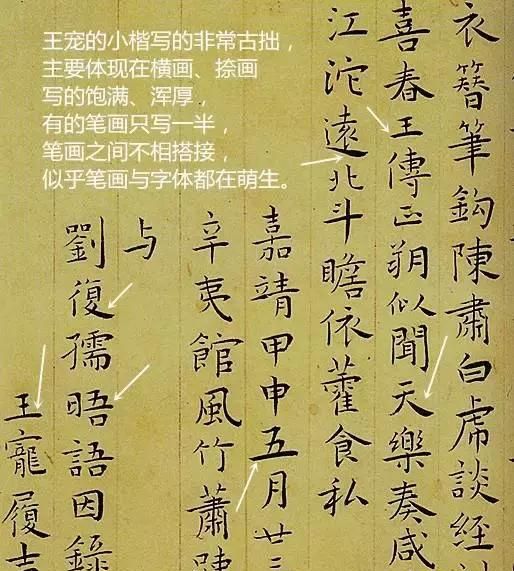 王宠的小楷写的非常古拙，
主要体现在横画、捺画
写的饱满、浑厚，
有的笔画只写一半，
笔画之间不相搭接，
似乎笔画与字体都在萌生。
衣簪筆鈎陳肅白虎談經
喜春王傳正朔似聞天樂奏咸
江沱遠北斗瞻依藿食私
嘉靖甲申五月廿三
辛夷館風竹蕭
与
劉復孺晤語因錄
王寵履吉